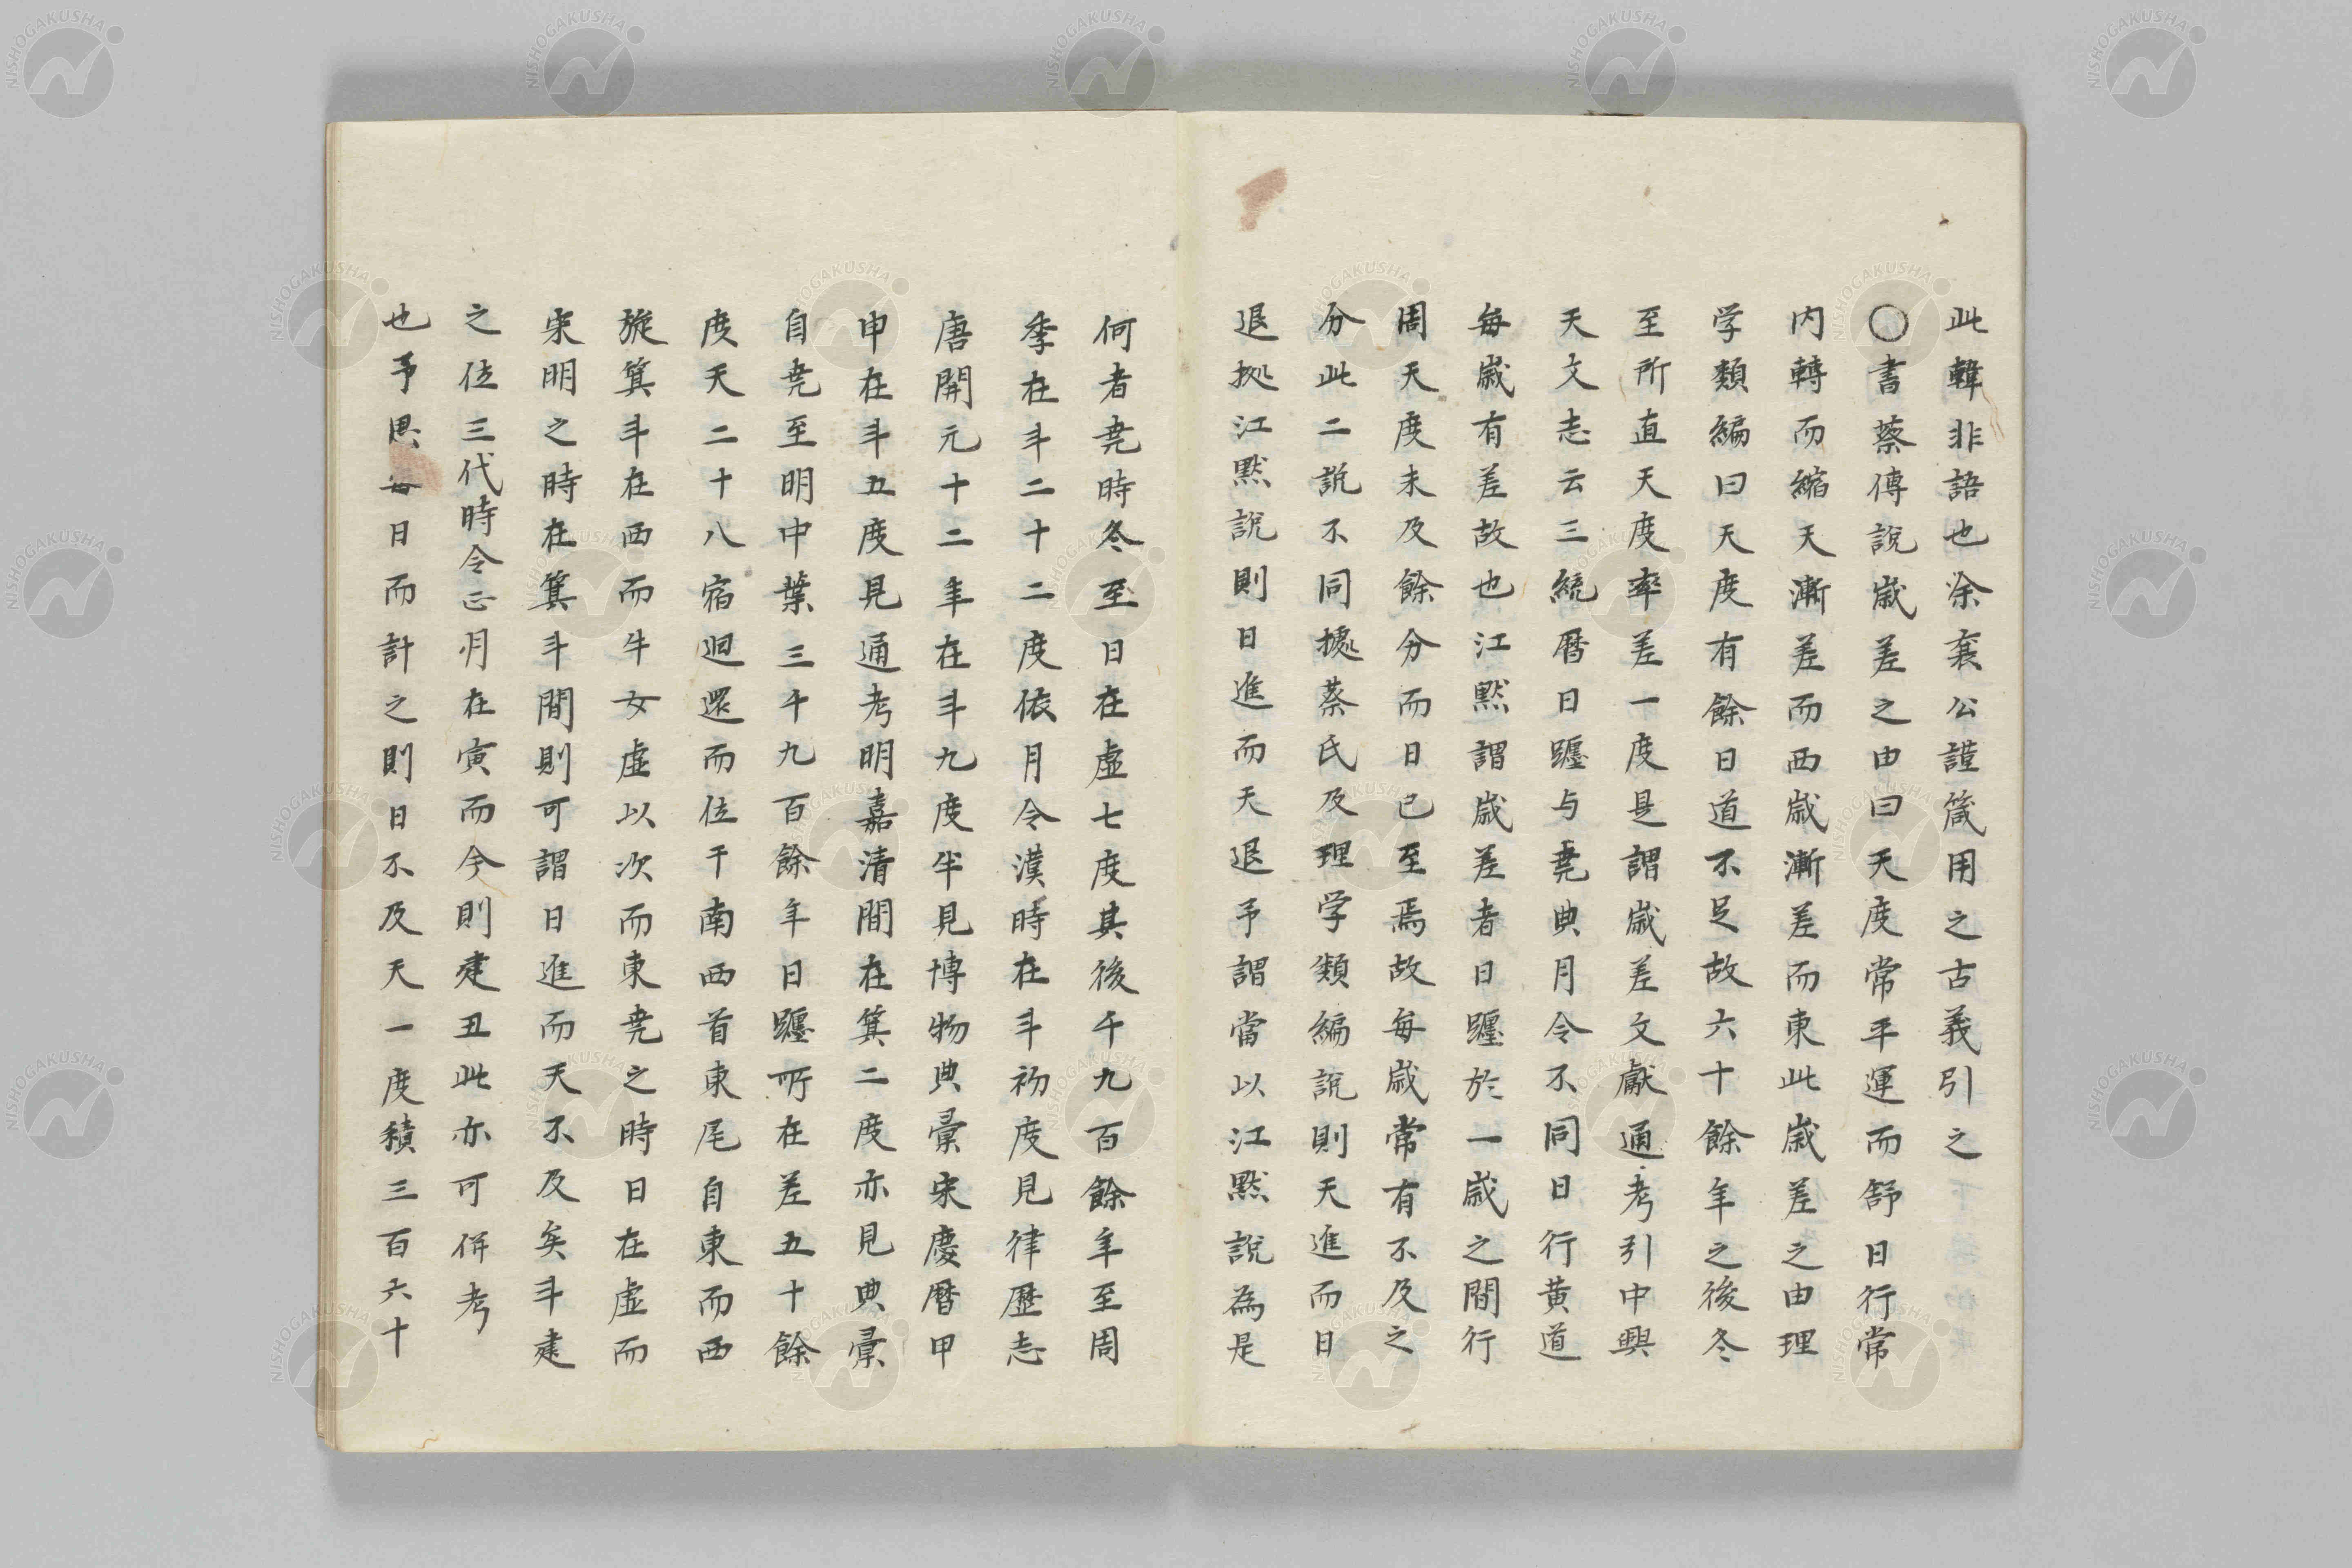 此韓非語也余襄公謹箴用之古義引之
〇書蔡傳說歲差之由曰天度常平運而舒日行常
内轉而縮天漸差而西歲漸差而東此歲差之由理
学類編曰天度有餘日道不足故六十餘年之後冬
至所直天度率差一度是謂歲差文獻通考引中興
天文志云三統曆日躔与堯典月令不同日行黄道
每歲有差故也江黙謂歲差者日躔於一歲之間行
周天度未及餘分而日已至焉故每歲常有不及之
分此二説不同據蔡氏及理学類編説則天進而日
退拠江黙説則日進而天退予謂當以江黙說為是
何者堯時冬至日在虚七度其後千九百餘年至周
季在斗二十二度依月令漢時在斗初度見律歷志
唐開元十二年在斗九度半見博物典彙宋慶曆甲
申在斗五度見通考明嘉清間在箕二度亦見典彙
自堯至明中葉三千九百餘年日躔所在差五十餘
度天二十八宿迴還而位于南西首東尾自東而西
旋箕斗在西而牛女虚以次而東堯之時日在虚而
宋明之時在箕斗間則可謂日進而天不及矣斗建
之位三代時令正月在寅而今則建丑此亦可併考
也予思每日而計之則日不及天一度積三百六十
NISHOGAKUSHA